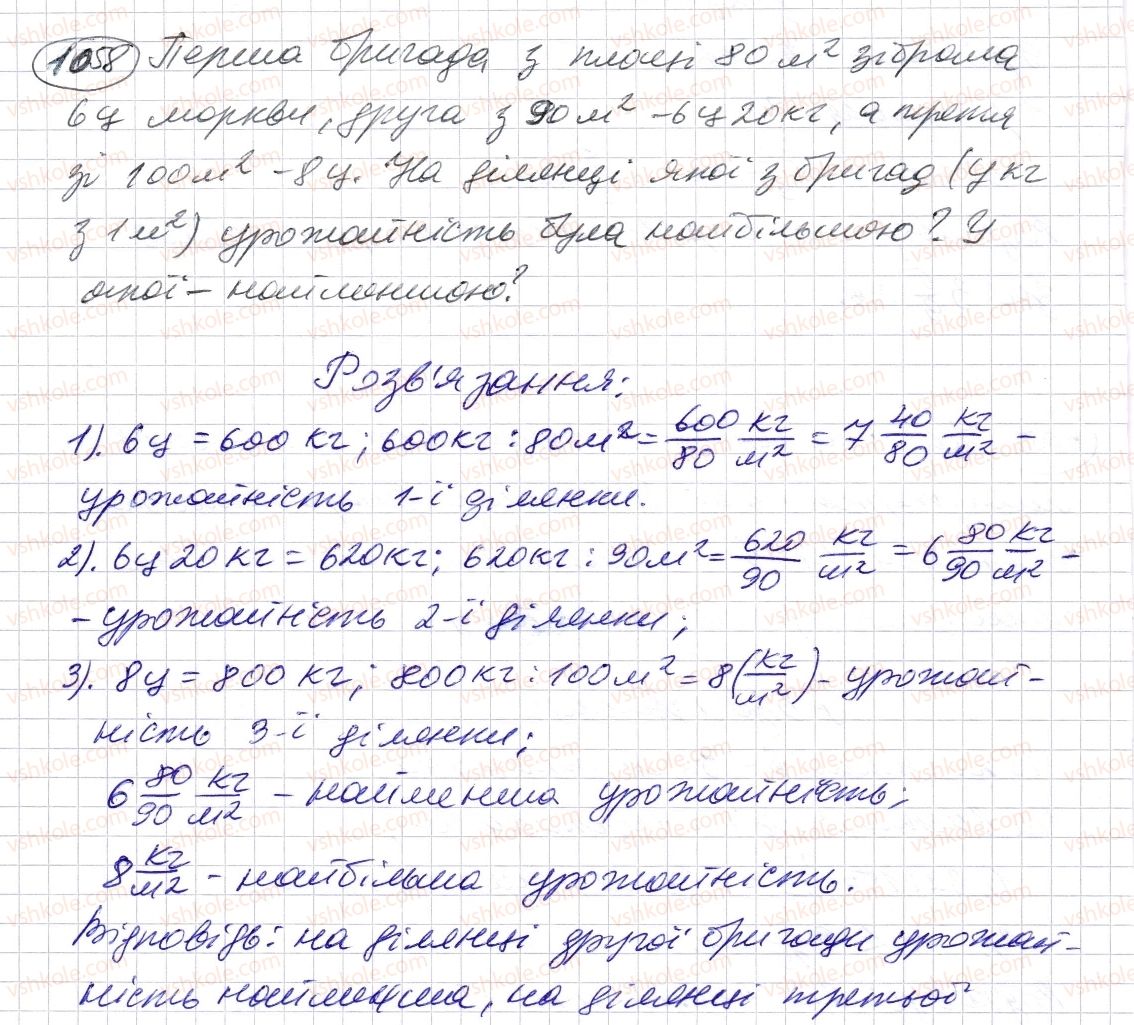 1058 Перша бригада з площі 80 м² зібрала
6 ц моркви, друга з 90 м² - 6 ц 20 кг, а третя
зі 100 м² - 8 ц. На ділянці якої з бригад (у кг
з 1 м²) урожайність була найбільшою? У
якої - найменшою?
Розв'язання:
1). 6 ц = 600 кг; 600 кг : 80 м² = 600/80 кг/м² = 7 40/80 кг/м² -
урожайність 1-ї ділянки.
2). 6 ц 20 кг = 620 кг; 620 кг : 90 м² = 620/90 кг/м² = 6 80/90 кг/м² -
- урожайність 2-ї ділянки;
3). 8 ц = 800 кг; 800 кг : 100 м² = 8 (кг/м²) - урожай-
ність 3-ї ділянки;
6 80/90 кг/м² - найменша урожайність;
8 кг/м² - найбільша урожайність.
Відповідь: на ділянці другої бригади урожай-
ність найменша, на ділянці третьої